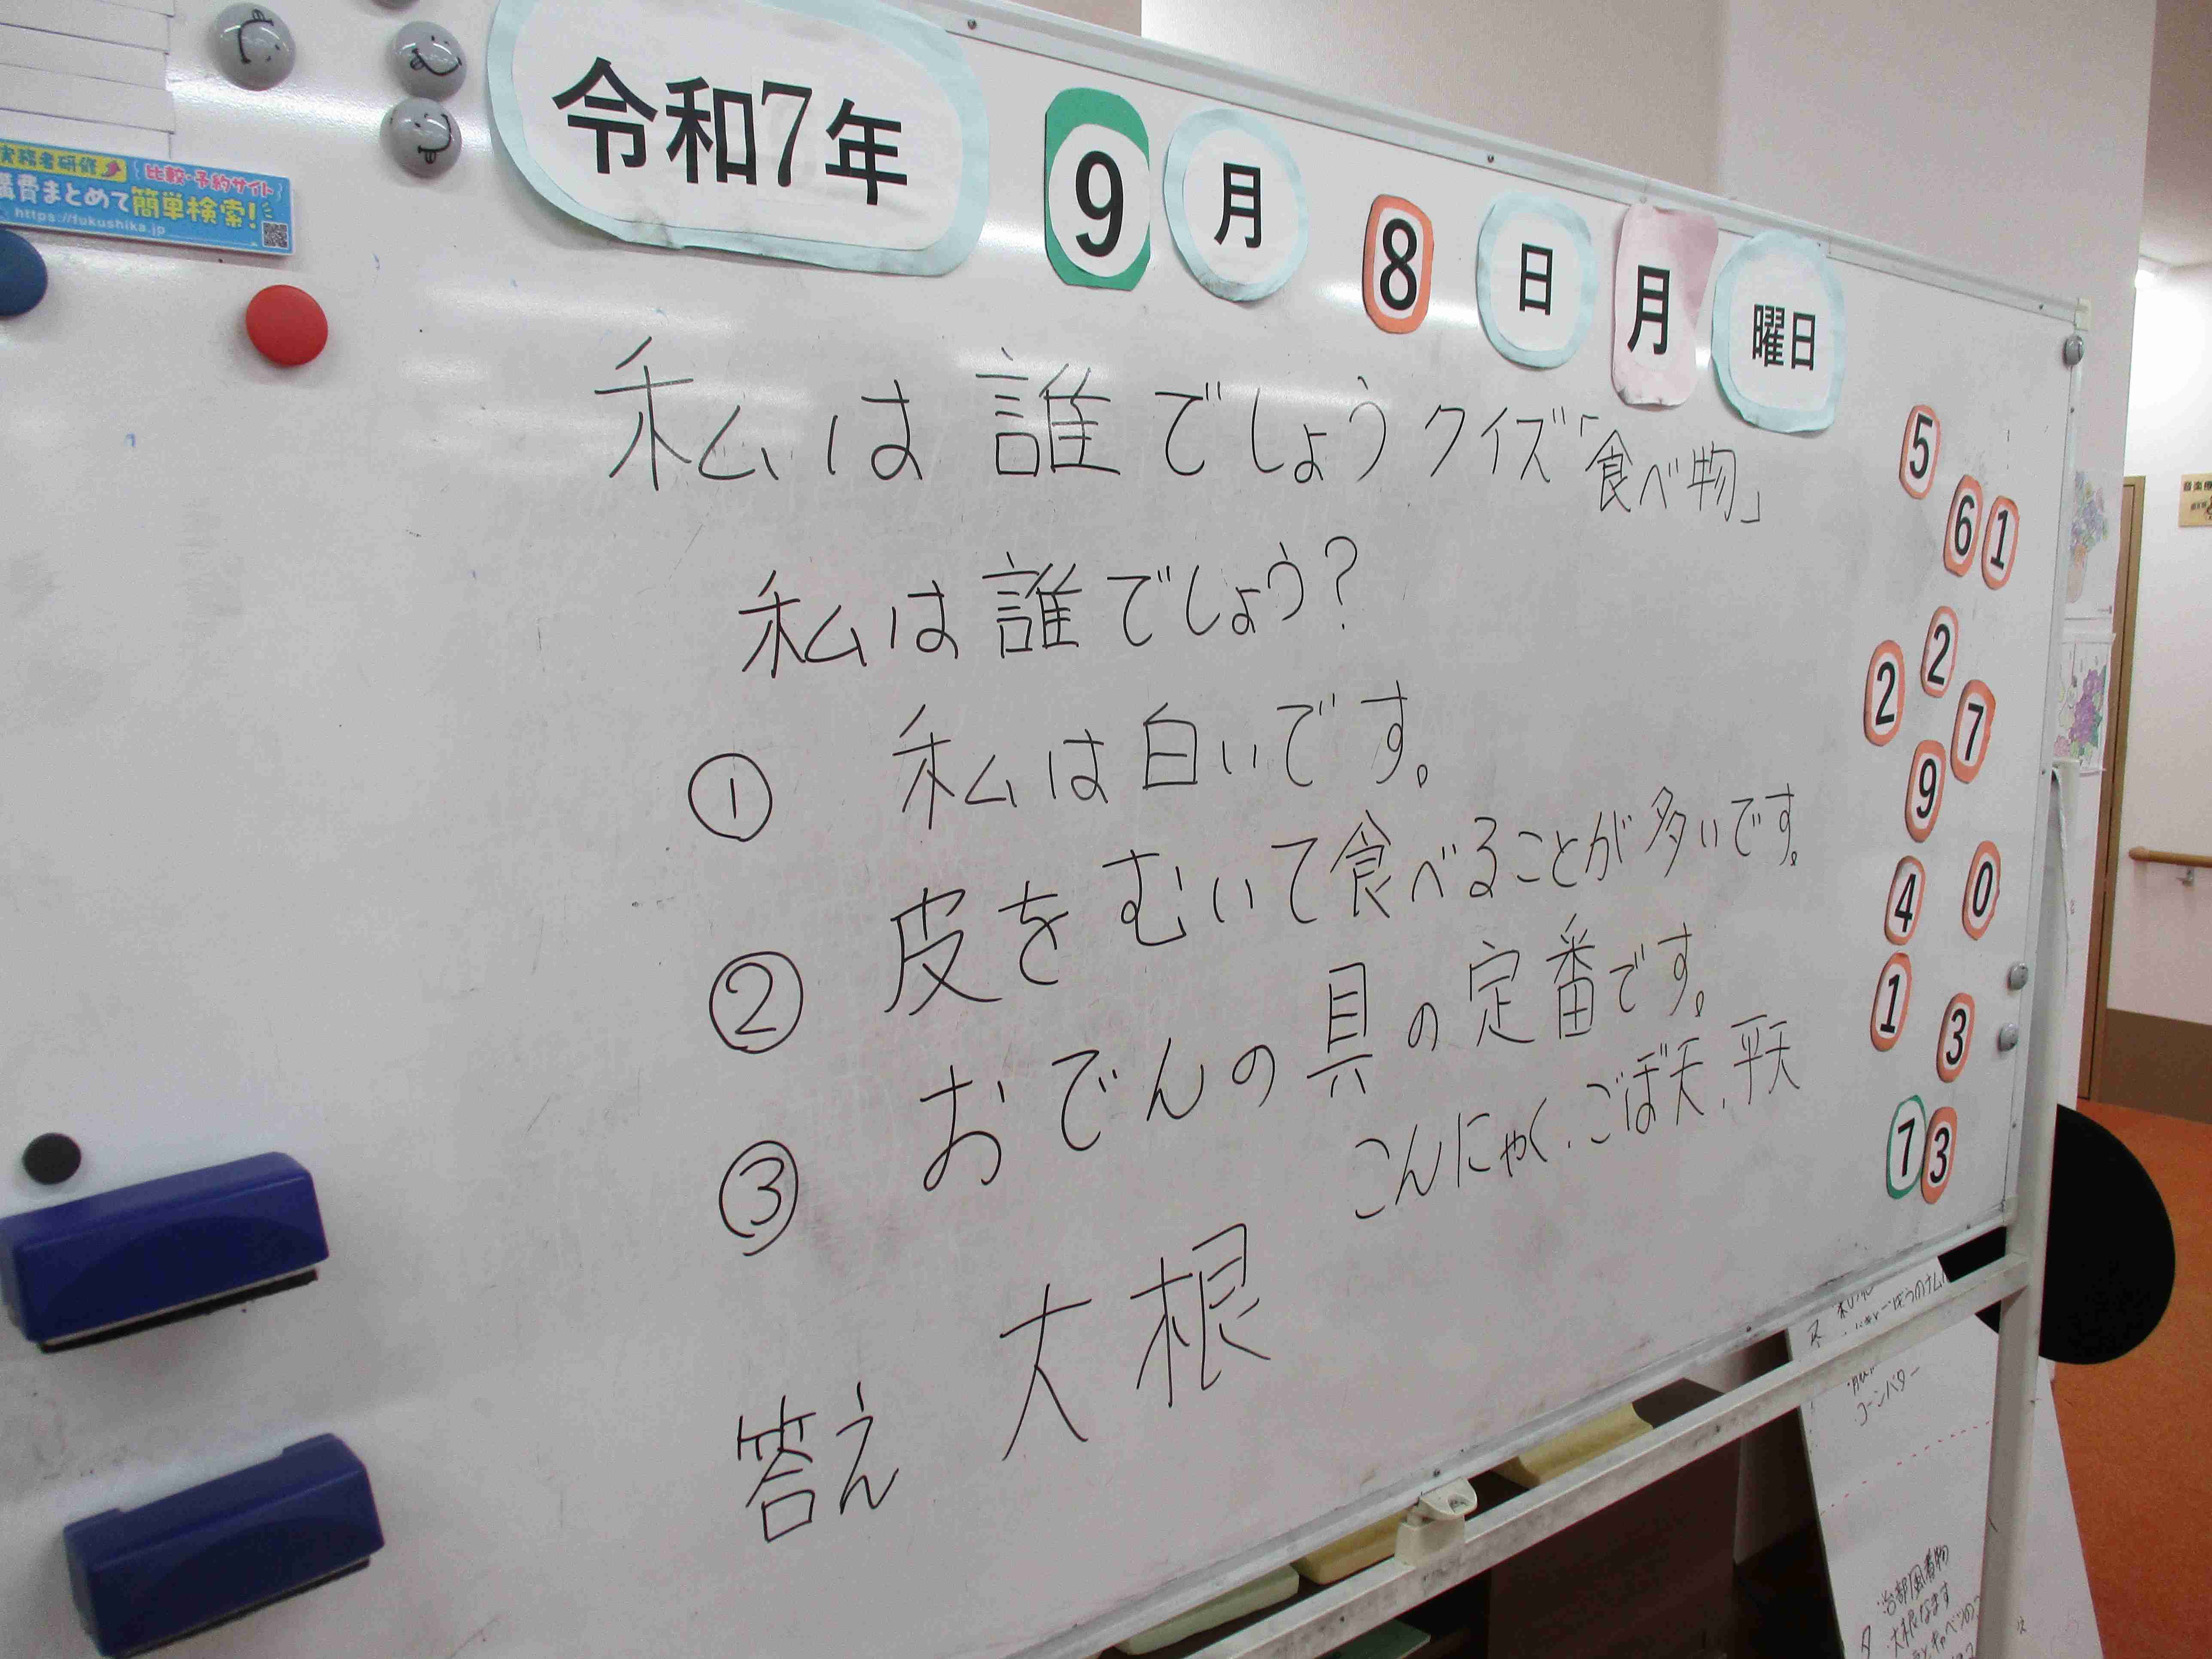 実務者研修
比較・予約サイト
費まとめて簡単検索!
https://fukushika.jp
令和7年 9月 8日 月曜日
私は誰でしょうクイズ「食べ物」
私は誰でしょう?
① 私は白いです。
② 皮をむいて食べることが多いです。
③ おでんの具の定番です。
こんにゃく、ごぼ天、平天
答え 大根
5
6 1
2
2
7
9
4 0
1
3
7 3
コーンバター
治部風煮物
大根なます